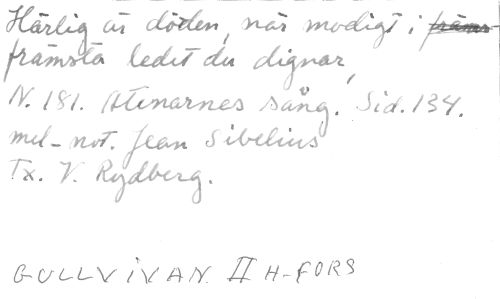 Härlig är döden, när modigt i främs-
främsta ledet du dignar,
N. 181. Atenarnes sång. Sid. 134.
mel-not. Jean Sibelius
Tx. V. Rydberg.
GULLVIVAN II H-FORS